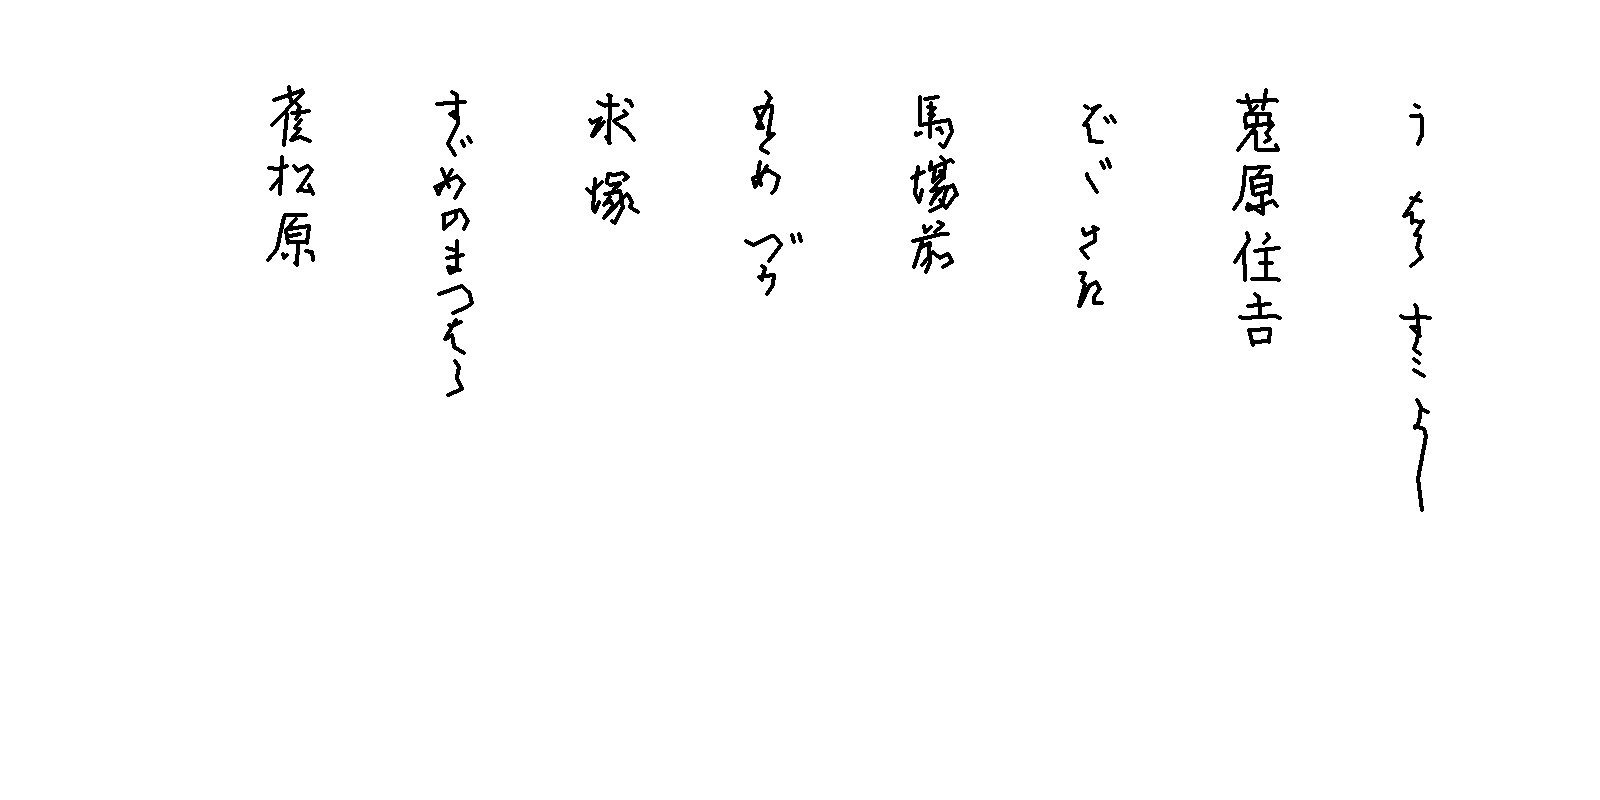 うはらすミよし
菟原住吉
ばゞさき
馬場前
もとめづか
求塚
すゞめのまつはら
雀松原